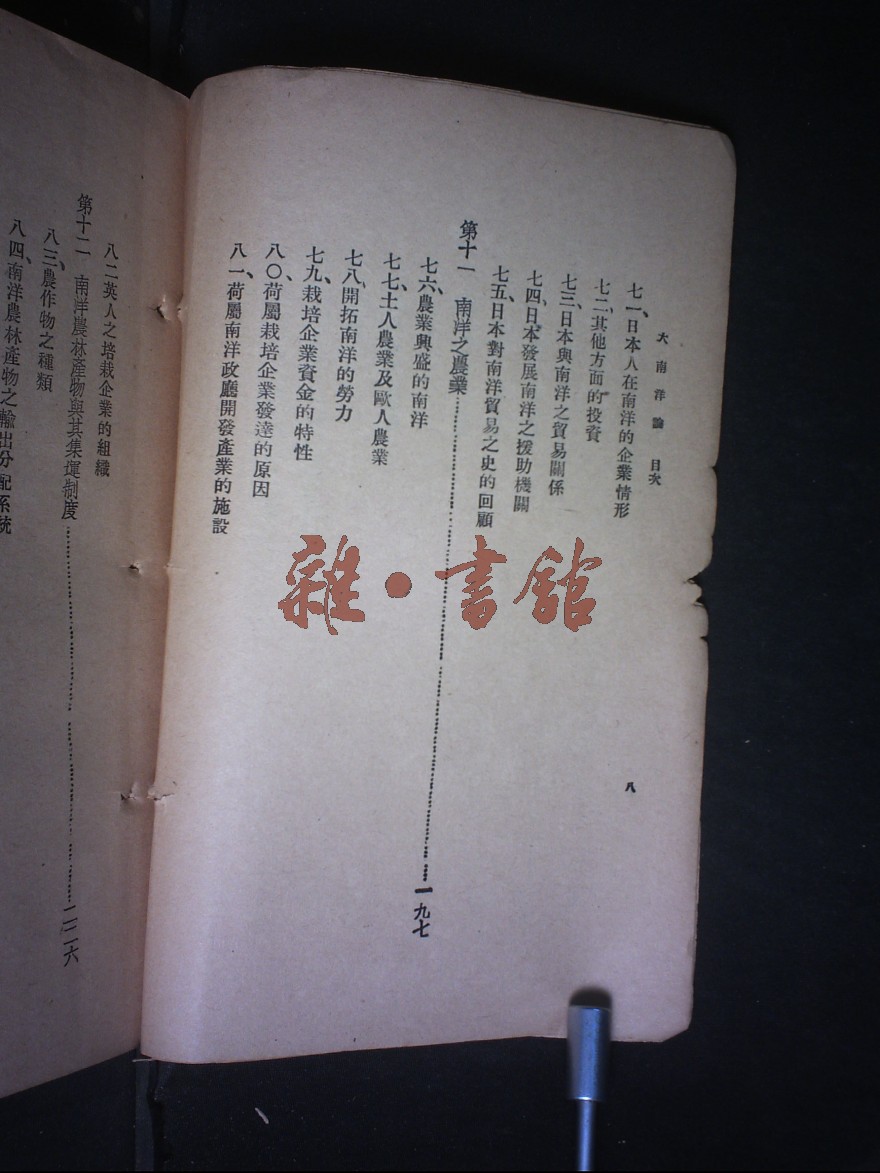 大南洋論　目次
七一、日本人在南洋的企業情形
七二、其他方面的投資
七三、日本與南洋之貿易關係
七四、日本發展南洋之援助機關
七五、日本對南洋貿易之史的回顧
第十一　南洋之農業……一九七
七六、農業興盛的南洋
七七、土人農業及歐人農業
七八、開拓南洋的勞力
七九、栽培企業資金的特性
八〇、荷屬栽培企業發達的原因
八一、荷屬南洋政廳開發產業的施設
八
八二英人之培栽企業的組織
第十二　南洋農林產物與其集運制度……二二六
八三、農作物之種類
八四、南洋農林產物之輸出分配系統
雜·書館